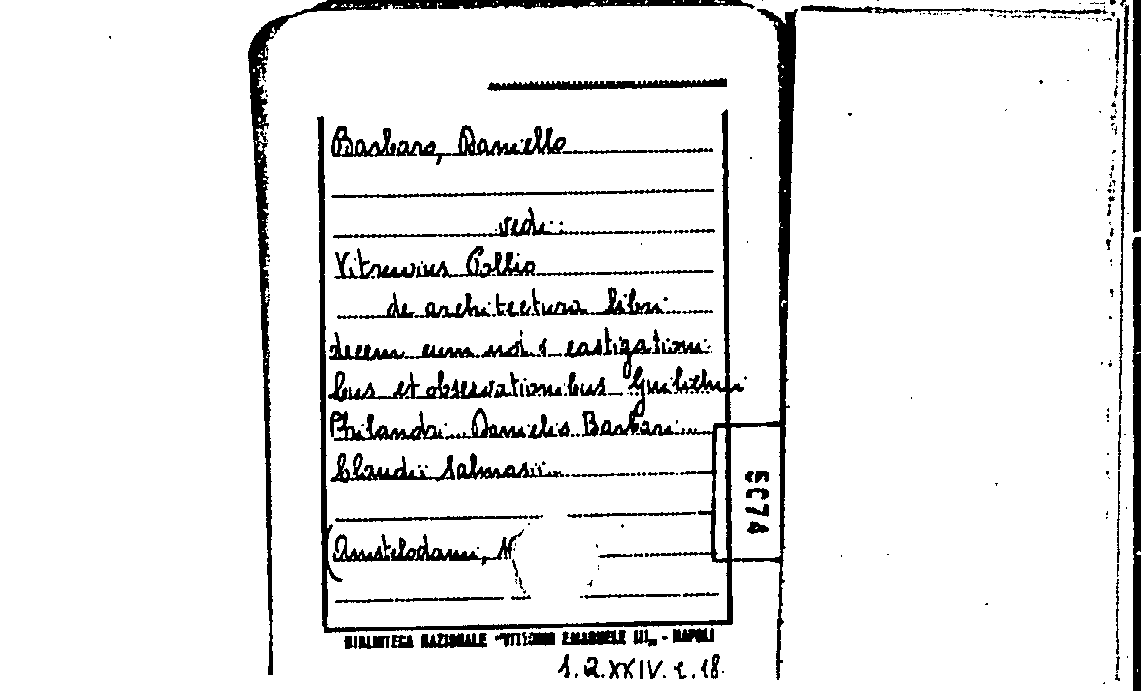 Barbaro, Daniello
vedi:
Vitruvius Pollio
de architectura libri
decem cum notis castigationi
bus et observationibus Guilielmi
Philandri Danielis Barbari
Claudii Salmasii
(Amstelodami,
BIBLIOTECA NAZIONALE "VITTORIO EMANUELE III" - NAPOLI
5074